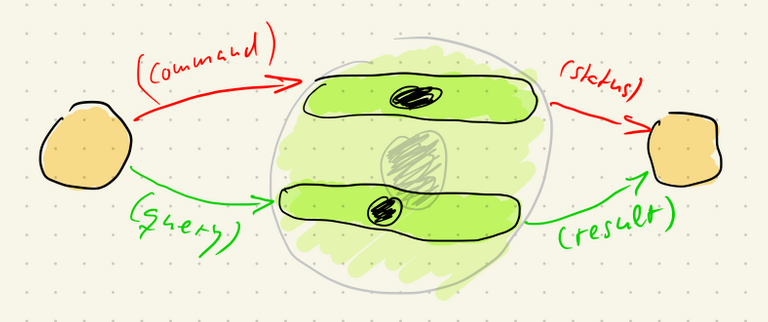 (command)
(status)
(query)
(result)